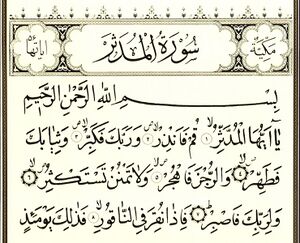 مكية سورة المدثر اياتها ٥٦
بسم الله الرحمن الرحيم
يا ايها المدثر ١ قم فانذر ٢ وربك فكبر ٣ وثيابك
فطهر ٤ والرجز فاهجر ٥ ولا تمنن تستكثر ٦
ولربك فاصبر ٧ فاذا نقر في الناقور ٨ فذلك يومئذ